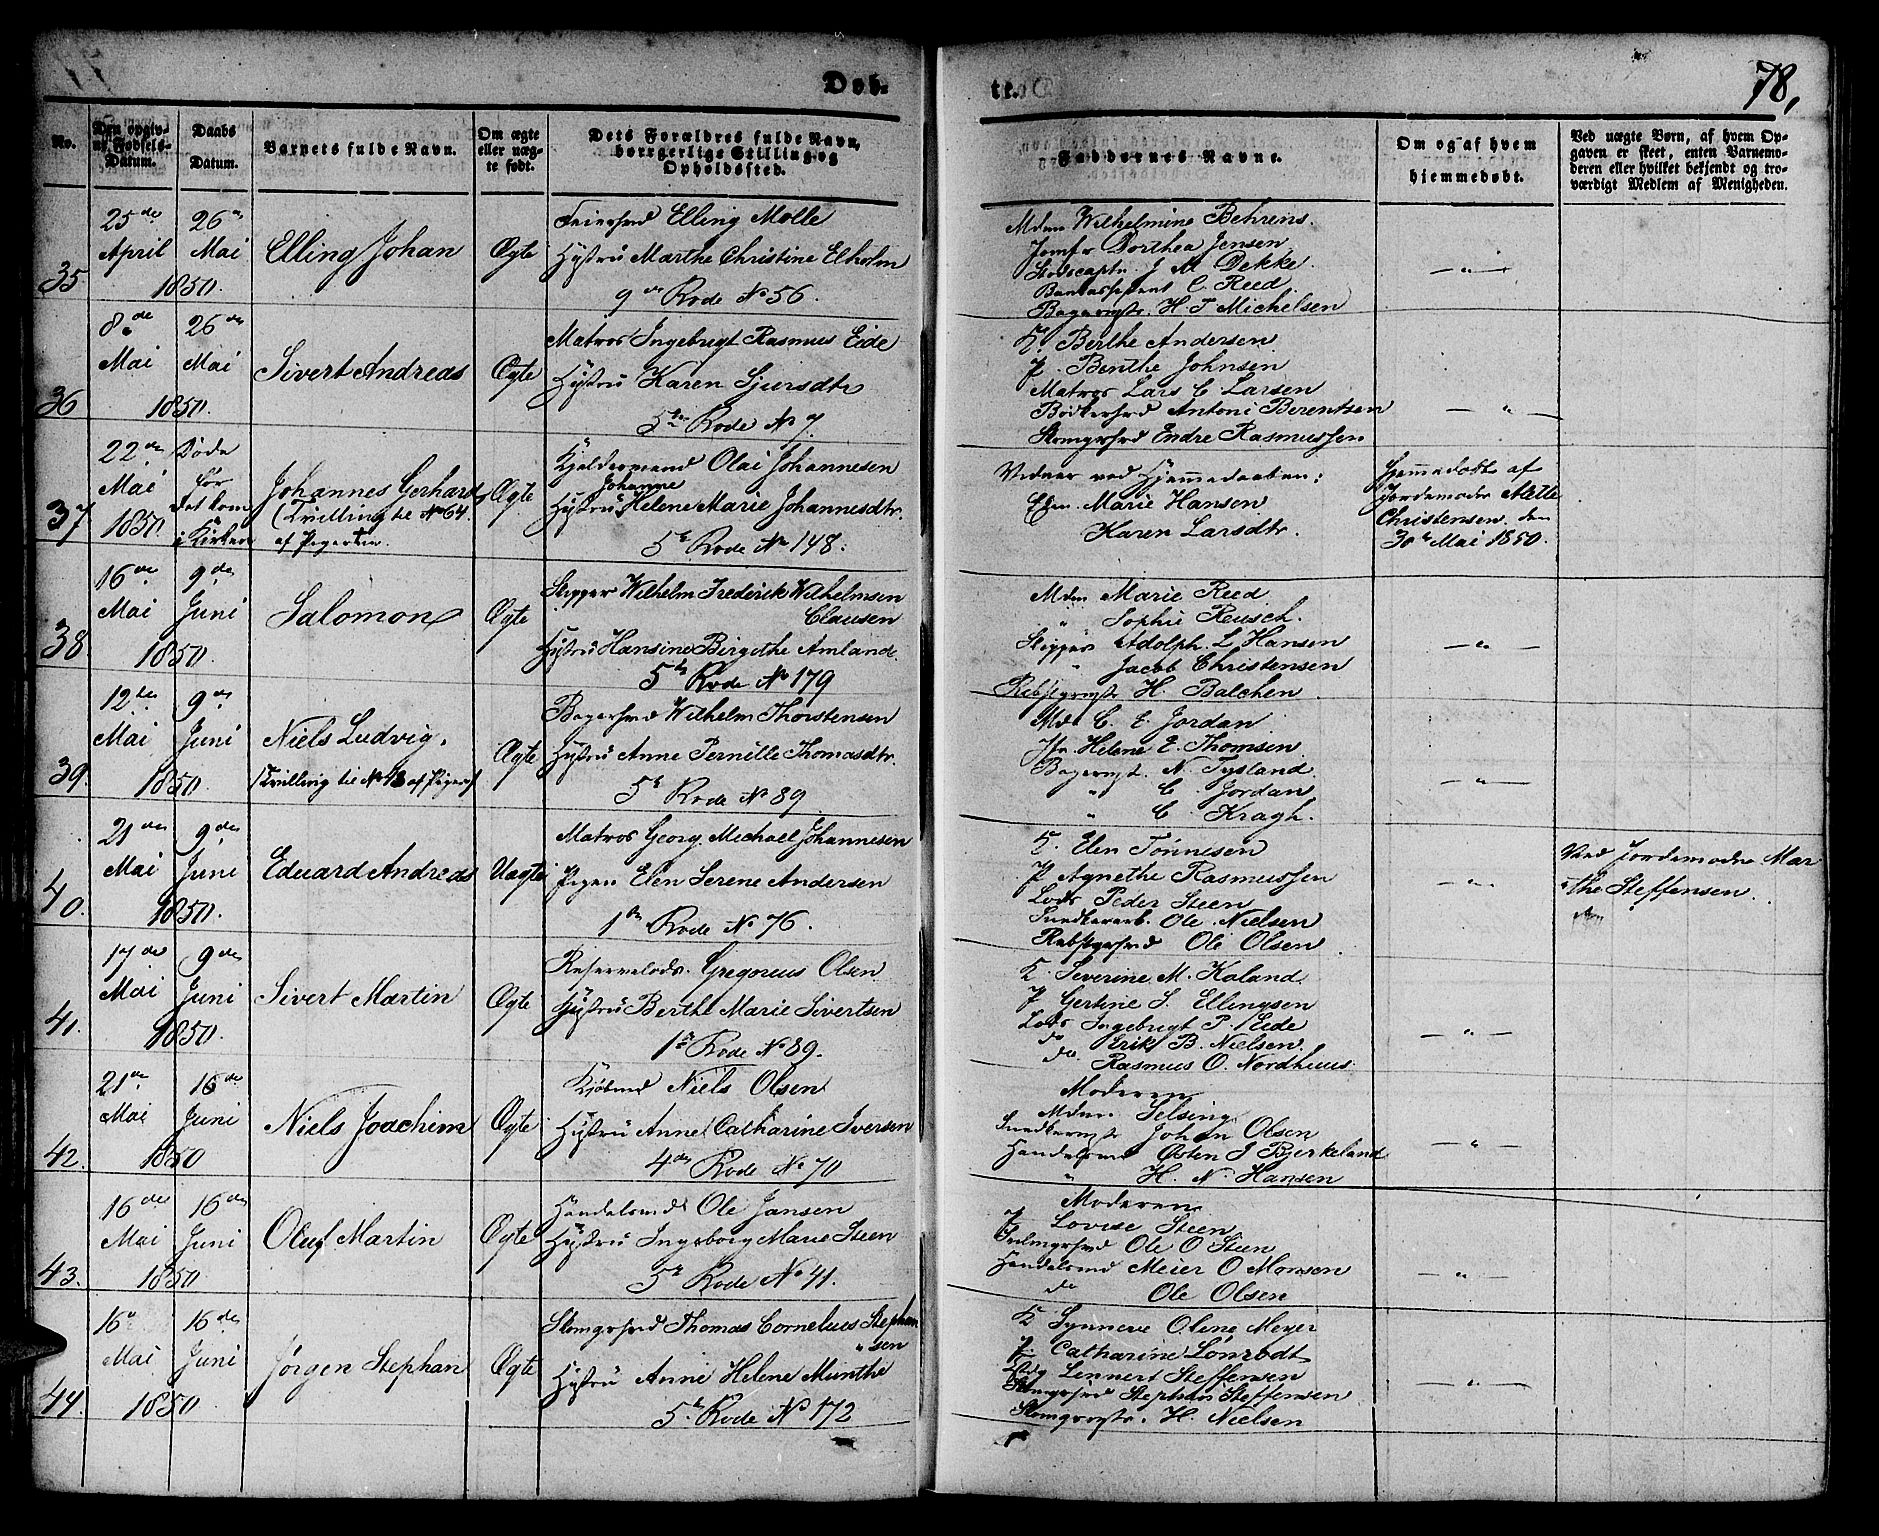 Døb-
No.
Den opgiv-
ne Fødsels-
Datum.
Daabs
Datum.
Barnets fulde Navn.
Om ægte
eller uæg-
te født.
Dets Forældres fulde Navn,
borgerlige Stilling og
Opholdssted.
35
25de April 1850.
26de Mai
Elling Johan
Ægte
Feiersvend Elling Molle
Hustru Marthe Christine Elholm
9de Rode No 56.
36
8de Mai 1850.
26de Mai
Sivert Andreas
Ægte
Matros Ingebrigt Rasmus Eide
Hustru Karen Sjursdtr
5te Rode No 7.
37
22de Mai 1850.
Døde
før
det kom
i Kirken
Johannes Gerhard
(Tvilling til No 64.
af Pigerne.
Ægte
Kjeldermand Olai Johannesen
Johanne
Hustru Helene Marie Johannesdtr.
5te Rode No 148.
38
16de Mai 1850.
9de Juni
Salomon
Ægte
Skipper Wilhelm Frederik Wilhelmsen
Clausen
Hustru Hansine Birgithe Amland.
5te Rode No 179
39.
12te Mai 1850.
9de Juni
Niels Ludvig.
(Tvilling til No 48 af Pigerne)
Ægte
Bagersvend Wilhelm Thorstensen
Hustru Anne Pernille Thomasdtr.
5te Rode No 89
40.
21de Mai 1850.
9de Juni
Eduard Andreas
Uægte
Matros Georg Michael Johannesen
Pigen Elen Serene Andersen
1te Rode No 76.
41.
17de Mai 1850.
9de Juni
Sivert Martin
Ægte
Reservelods. Gregorius Olsen
Hustru Berthe Marie Sivertsen
1te Rode No 89.
42.
21de Mai 1850
16de Juni
Niels Joachim
Ægte
Kjøbmd Niels Olsen
Hustru Anne Catharine Iversen
4de Rode No 70
43.
16de Mai 1850
16de Juni
Oluf Martin
Ægte
Handelsmd Ole Jansen
Hustru Ingeborg Marie Steen
5te Rode No 41.
44.
16de Mai 1850
16de Juni
Jørgen Stephan
Ægte
Skomgrsvd Thomas Cornelius Stephan
sen
Hustru Anne Helene Munthe
5te Rode No 172
78,
Faddernes Navne.
Om og af hvem
hjemmedøbt.
Ved uægte Børn, af hvem Op-
gaven er skeet, enten Barnemo-
deren eller hvilket bekjendt og tro-
værdigt Medlem af Menigheden.
Mdm Wilhelmine Behrens.
Jomfr Dorthea Jensen
J M Dekke.
C. Reed.
Bagermstr. H. T Michelsen
— " —
K. Berthe Andersen
P. Benthe Johnsen
Matros Lars C. Larsen
Bødkersvd Antoni Berentsen
Skomgrsvd Endre Rasmussen
— " —
Vidner ved Hjemmedaaben:
Elen Marie Hansen
Karen Larsdtr.
Hjemmedøbt af
Jordemoder Mette
Christensen. den
30te Mai 1850.
Mdm Marie Reed
" Sophie Reusch.
Skipper Adolph. L Hansen
" Jacob Christensen
Rebslgrmstr H. Balchen
— " —
Md. C. E. Jordan
Jfr. Helene E. Thomsen
Bagermst. N. Tysland.
" C. Jordan
" C. Kragh.
— " —
K. Elen Tønnesen
P Agnethe Rasmussen
Lods Peder Steen
Snedkerarb. Ole Nielsen
Rebslgersvd Ole Olsen
— " —
Ved Jordemoder Mar
the Steffensen.
K. Severine M. Kaland
P Gertine S. Ellingsen
Lods Ingebrigt P. Eide
do Erik B. Nielsen.
do Rasmus O. Nordhuus.
— " —
Moderen
Mdm. Selsing
Snedkermstr Johan Olsen
Handelsmd Østen I Bjerkeland
" H. N. Hansen
— " —
Moderen
P Lovise Steen
Ole O Steen
Handelsmd Meier O Monsen
do Ole Olsen
— " —
K Synneve Olene Meyer
P. Catharine Lønrodt
Lennert Steffensen
Skomgrsvd Stephan Steffensen
Skomgrmstr. H. Nielsen
— " —